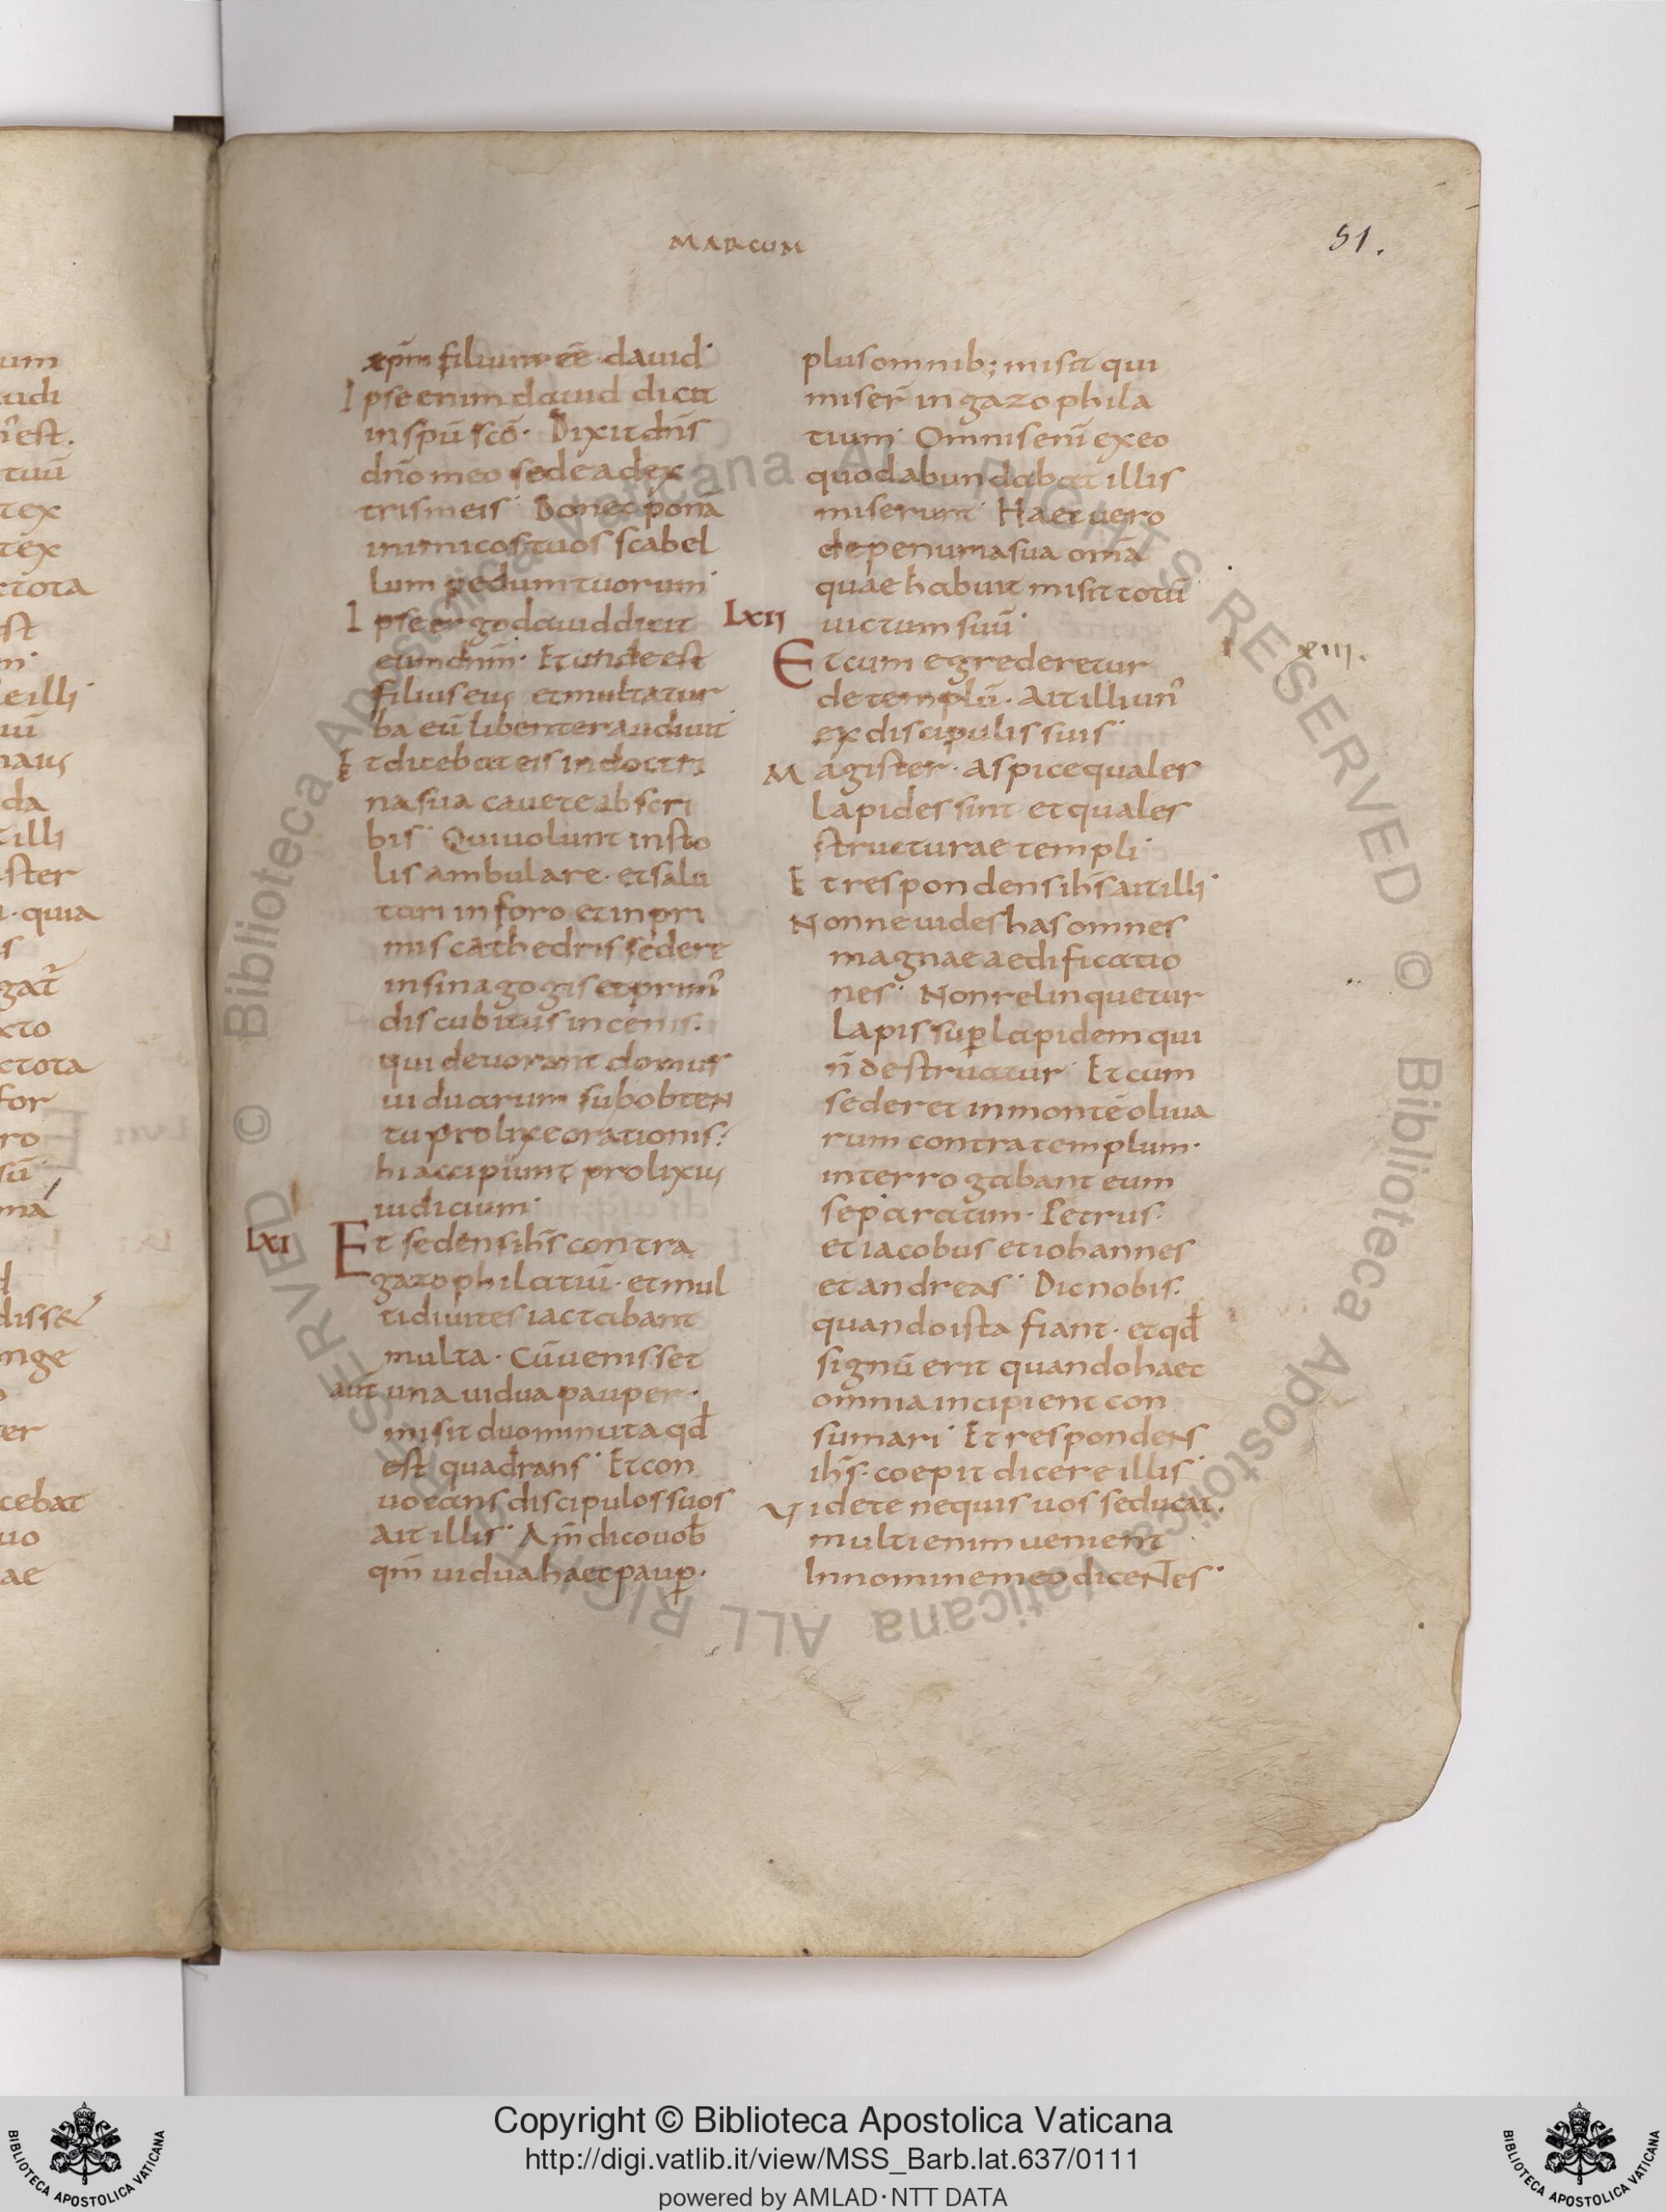 MARCUM
51.
xp̄m filium ēe dauid·
Ipse enim dauid dicit
in sp̄u scō· Dixit dn̄s
dn̄o meo sede a dex
tris meis· Donec ponā
inimicos tuos scabel
lum pedum tuorum·
Ipse ergo dauid dicit
eum dn̄m· Et unde est
filius eius et multa tur
ba eū libenter audiuit·
Et dicebat eis in doctri
na sua cauete ab scri
bis· Qui uolunt in sto
lis ambulare· et salu
tari in foro et in pri
mis cathedris sedere
in sinagogis et prim᾽
discubitus in cenis·
qui deuorant domus
uiduarum sub obten
tu prolixe orationis·
hi accipiunt prolixius
iudicium·
LXI
Et sedens ih̄s contra
gazophilatiū· et mul
ti diuites iactabant
multa· Cū uenisset
aūt una uidua pauper·
misit duo minuta qd̄
est quadrans· Et con
uocans discipulos suos
ait illis· Am̄ dico uob̄
qm̄ uidua haec paup̲·
plus omnib; misit qui
miser̄ in gazophila
tium· Omnis enī ex eo
quod abundabat illis
miserunt· Haec uero
de penuria sua om̄a
quae habuit misit totū
uictum suū·
LXII
xiii.
Et cum egrederetur
de templū· Ait illi un᾽
ex discipulis suis·
Magister· aspice quales
lapides sint et quales
structurae templi·
Et respondens ih̄s ait illi·
Nonne uides has omnes
magnae aedificatio
nes· Non relinquetur
lapis sup̲ lapidem qui
n̄ destruatur· Et cum
sederet in monte oliua
rum contra templum·
interrogabant eum
separatim· Petrus·
et iacobus et iohannes
et andreas· Dic nobis·
quando ista fiant· et qd̄
signū erit quando haec
omnia incipient con
sumari· Et respondens
ih̄s· coepit dicere illis·
Videte ne quis uos seducat·
multi enim uenient
In nomine meo dicentes·
Copyright © Biblioteca Apostolica Vaticana
http://digi.vatlib.it/view/MSS_Barb.lat.637/0111
powered by AMLAD·NTT DATA
BIBLIOTECA APOSTOLICA VATICANA
BIBLIOTECA APOSTOLICA VATICANA